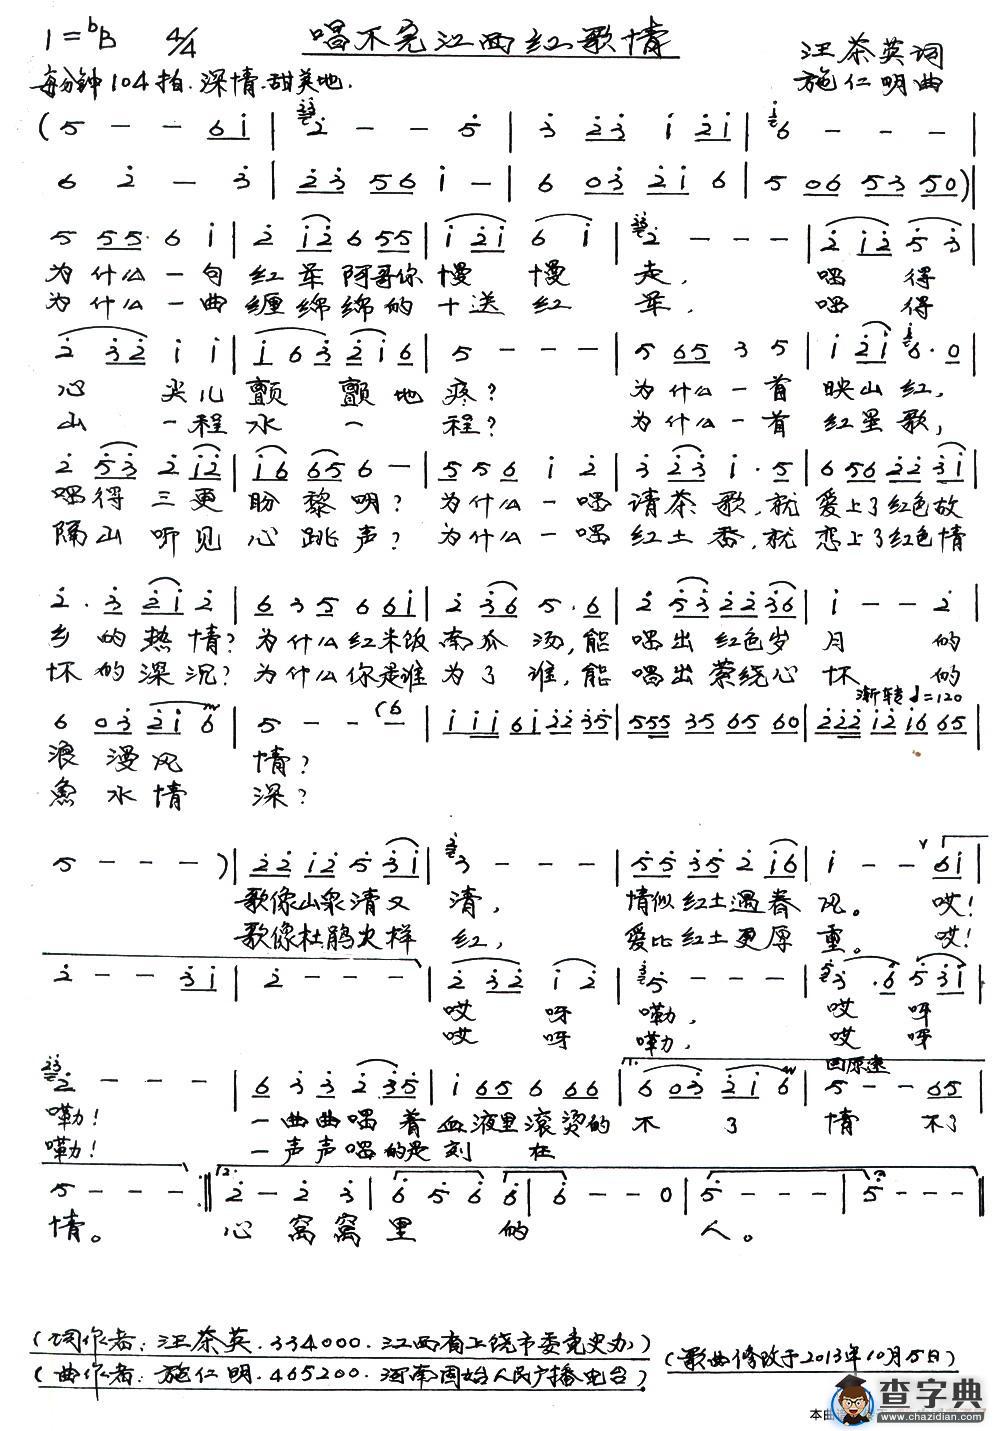 1=ᵇB 4/4 唱不完江西红歌情
汪茶英词
每分钟104拍.深情.甜美地.
施仁明曲
(5 - - 6i | 2 - - 5 | 3 23 i 2i | 6 - - - |
6 2 - 3 | 23 56 i - | 6 03 2i 6 | 5 06 53 50)|
5 55 6 i | 2 i2 6 55 | i 2i 6 i | 2 - - - | 2 i2 5 3
为什么一句红军阿哥你慢慢走, 唱得
为什么一曲缠绵绵的十送红军, 唱得
2 32 i i | i 63 2i6 | 5 - - - | 5 65 3 5 | i 2i 6·0
心尖儿颤颤地疼? 为什么一首映山红,
山一程水一程? 为什么一首红星歌,
2 53 2 i2 | i6 65 6 - | 5 5 6 i 2 | 3 23 i·5 | 656 22 3i
唱得三更盼黎明? 为什么一唱请茶歌,就爱上了红色故
隔山听见心跳声? 为什么一唱红土香,就恋上了红色情
2·3 2i 2 | 6 3 5 6 6i | 2 36 5·6 | 2 53 22 36 | i - - 2
乡的热情? 为什么红米饭南瓜汤,能唱出红色岁月的
怀的深沉? 为什么你是谁为了谁,能唱出萦绕心怀的
渐转♩=120
6 03 2i 6 | 5 - - (6 | i iii 6i 22 35 | 555 35 65 60 | 222 i2 i6 65 |
浪漫风情?
鱼水情深?
5 - - -) | 22 i2 5 3i | 3 - - - | 55 35 2 i6 | i - - 6i
歌像山泉清又清, 情似红土遇春风。 哎!
歌像杜鹃火样红, 爱比红土更厚重。 哎!
2 - - 3i | 2 - - - | 2 32 i 2 | 5 - - - | 3·6 5 3i
哎呀嘞, 哎呀
哎呀嘞, 哎呀
1. 回原速
2 - - - | 6 3 3 2 35 | i 65 6 66 | 6 03 2i 6 | 5 - - 65
嘞! 一曲曲唱着血液里滚烫的不了情不了
嘞! 一声声唱的是刻在
5 - - - :|| 2. 2 - 2 3 | 6 5 6 6 | 6 - - 0 | 5 - - - | 5 - - - ||
情。 心窝窝里的人。
(词作者:汪茶英.334000.江西省上饶市委党史办)
(曲作者:施仁明.465200.河南固始人民广播电台)
(歌曲修改于2013年10月5日)
查字典
www.chazidian.com
本曲